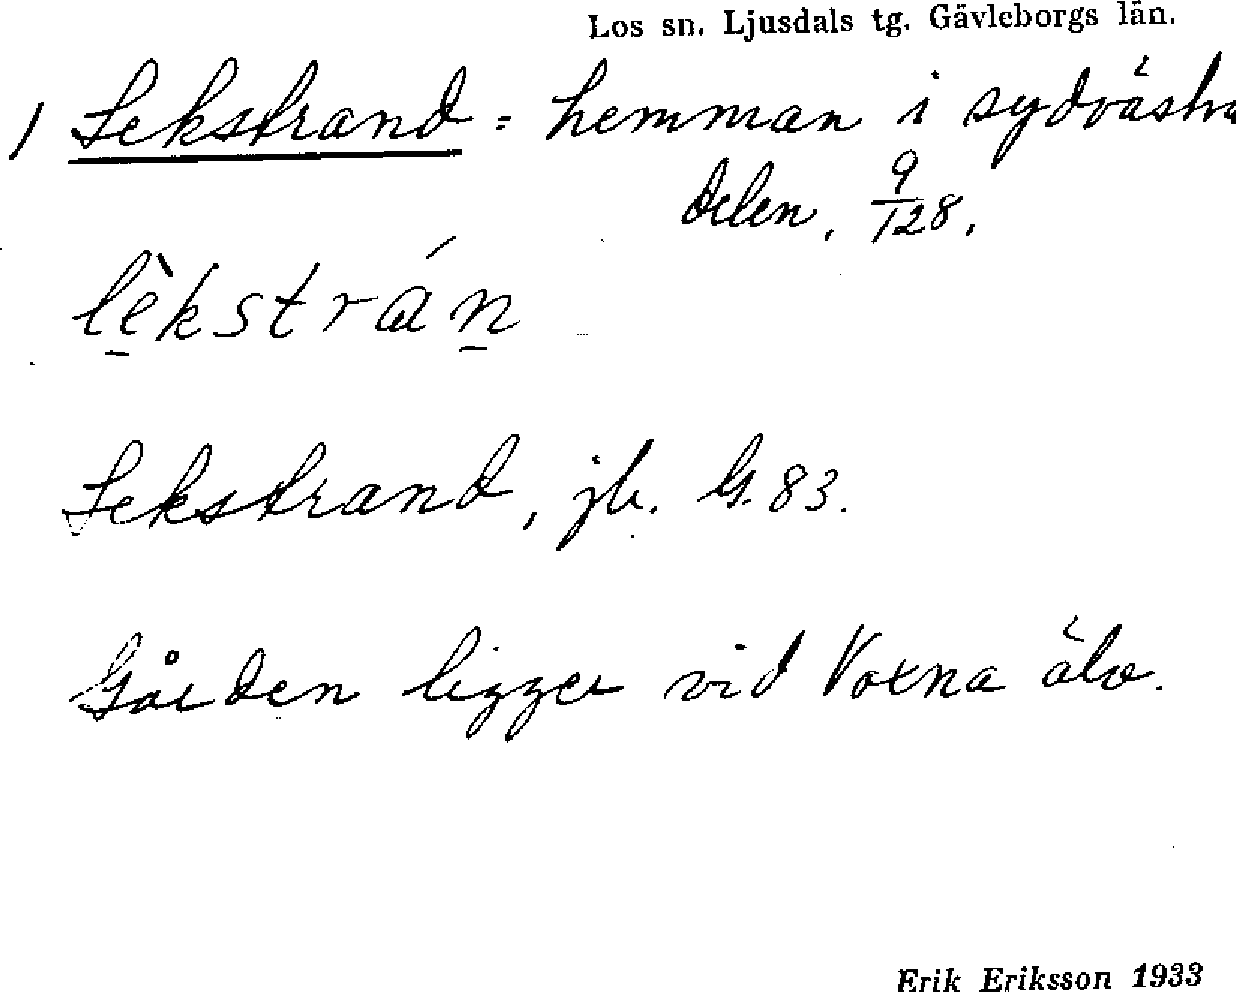 Los sn. Ljusdals tg. Gävleborgs län.
1 Lekstrand = hemman i sydvästra
delen, 9/128.
lèkstrán
Lekstrand, jb. G. 83.
Gården ligger vid Voxna älv.
Erik Eriksson 1933